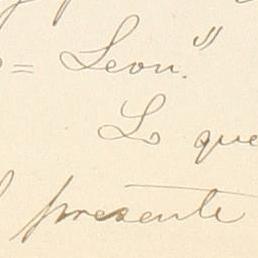 = Leon."
Lo que
presente